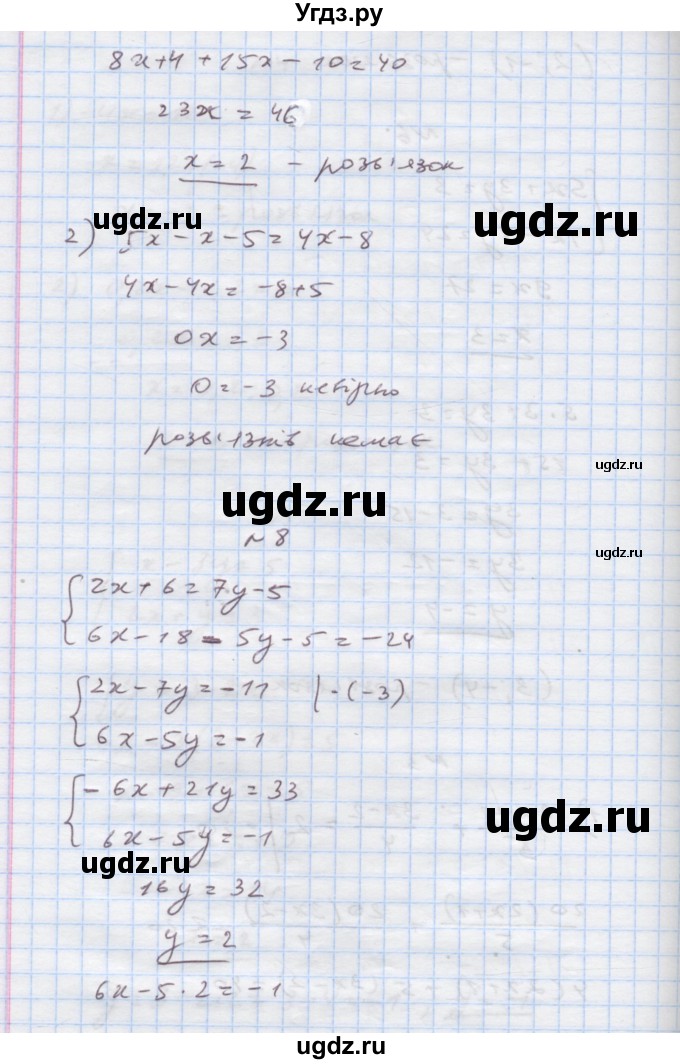 Угдз.ру
8x+4+15x-10=40
23x=46
x=2 - розв'язок
ugdz.ru
ugdz.ru
2) 5x-x-5=4x-8
4x-4x=-8+5
0x=-3
0=-3 невірно
розв'язків немає
ugdz.ru
ugdz.ru
№8
ugdz.ru
2x+6=7y-5
6x-18-5y-5=-24
2x-7y=-11 |·(-3)
6x-5y=-1
-6x+21y=33
ugdz.ru
6x-5y=-1
ugdz.ru
16y=32
y=2
6x-5·2=-1
ugdz.ru